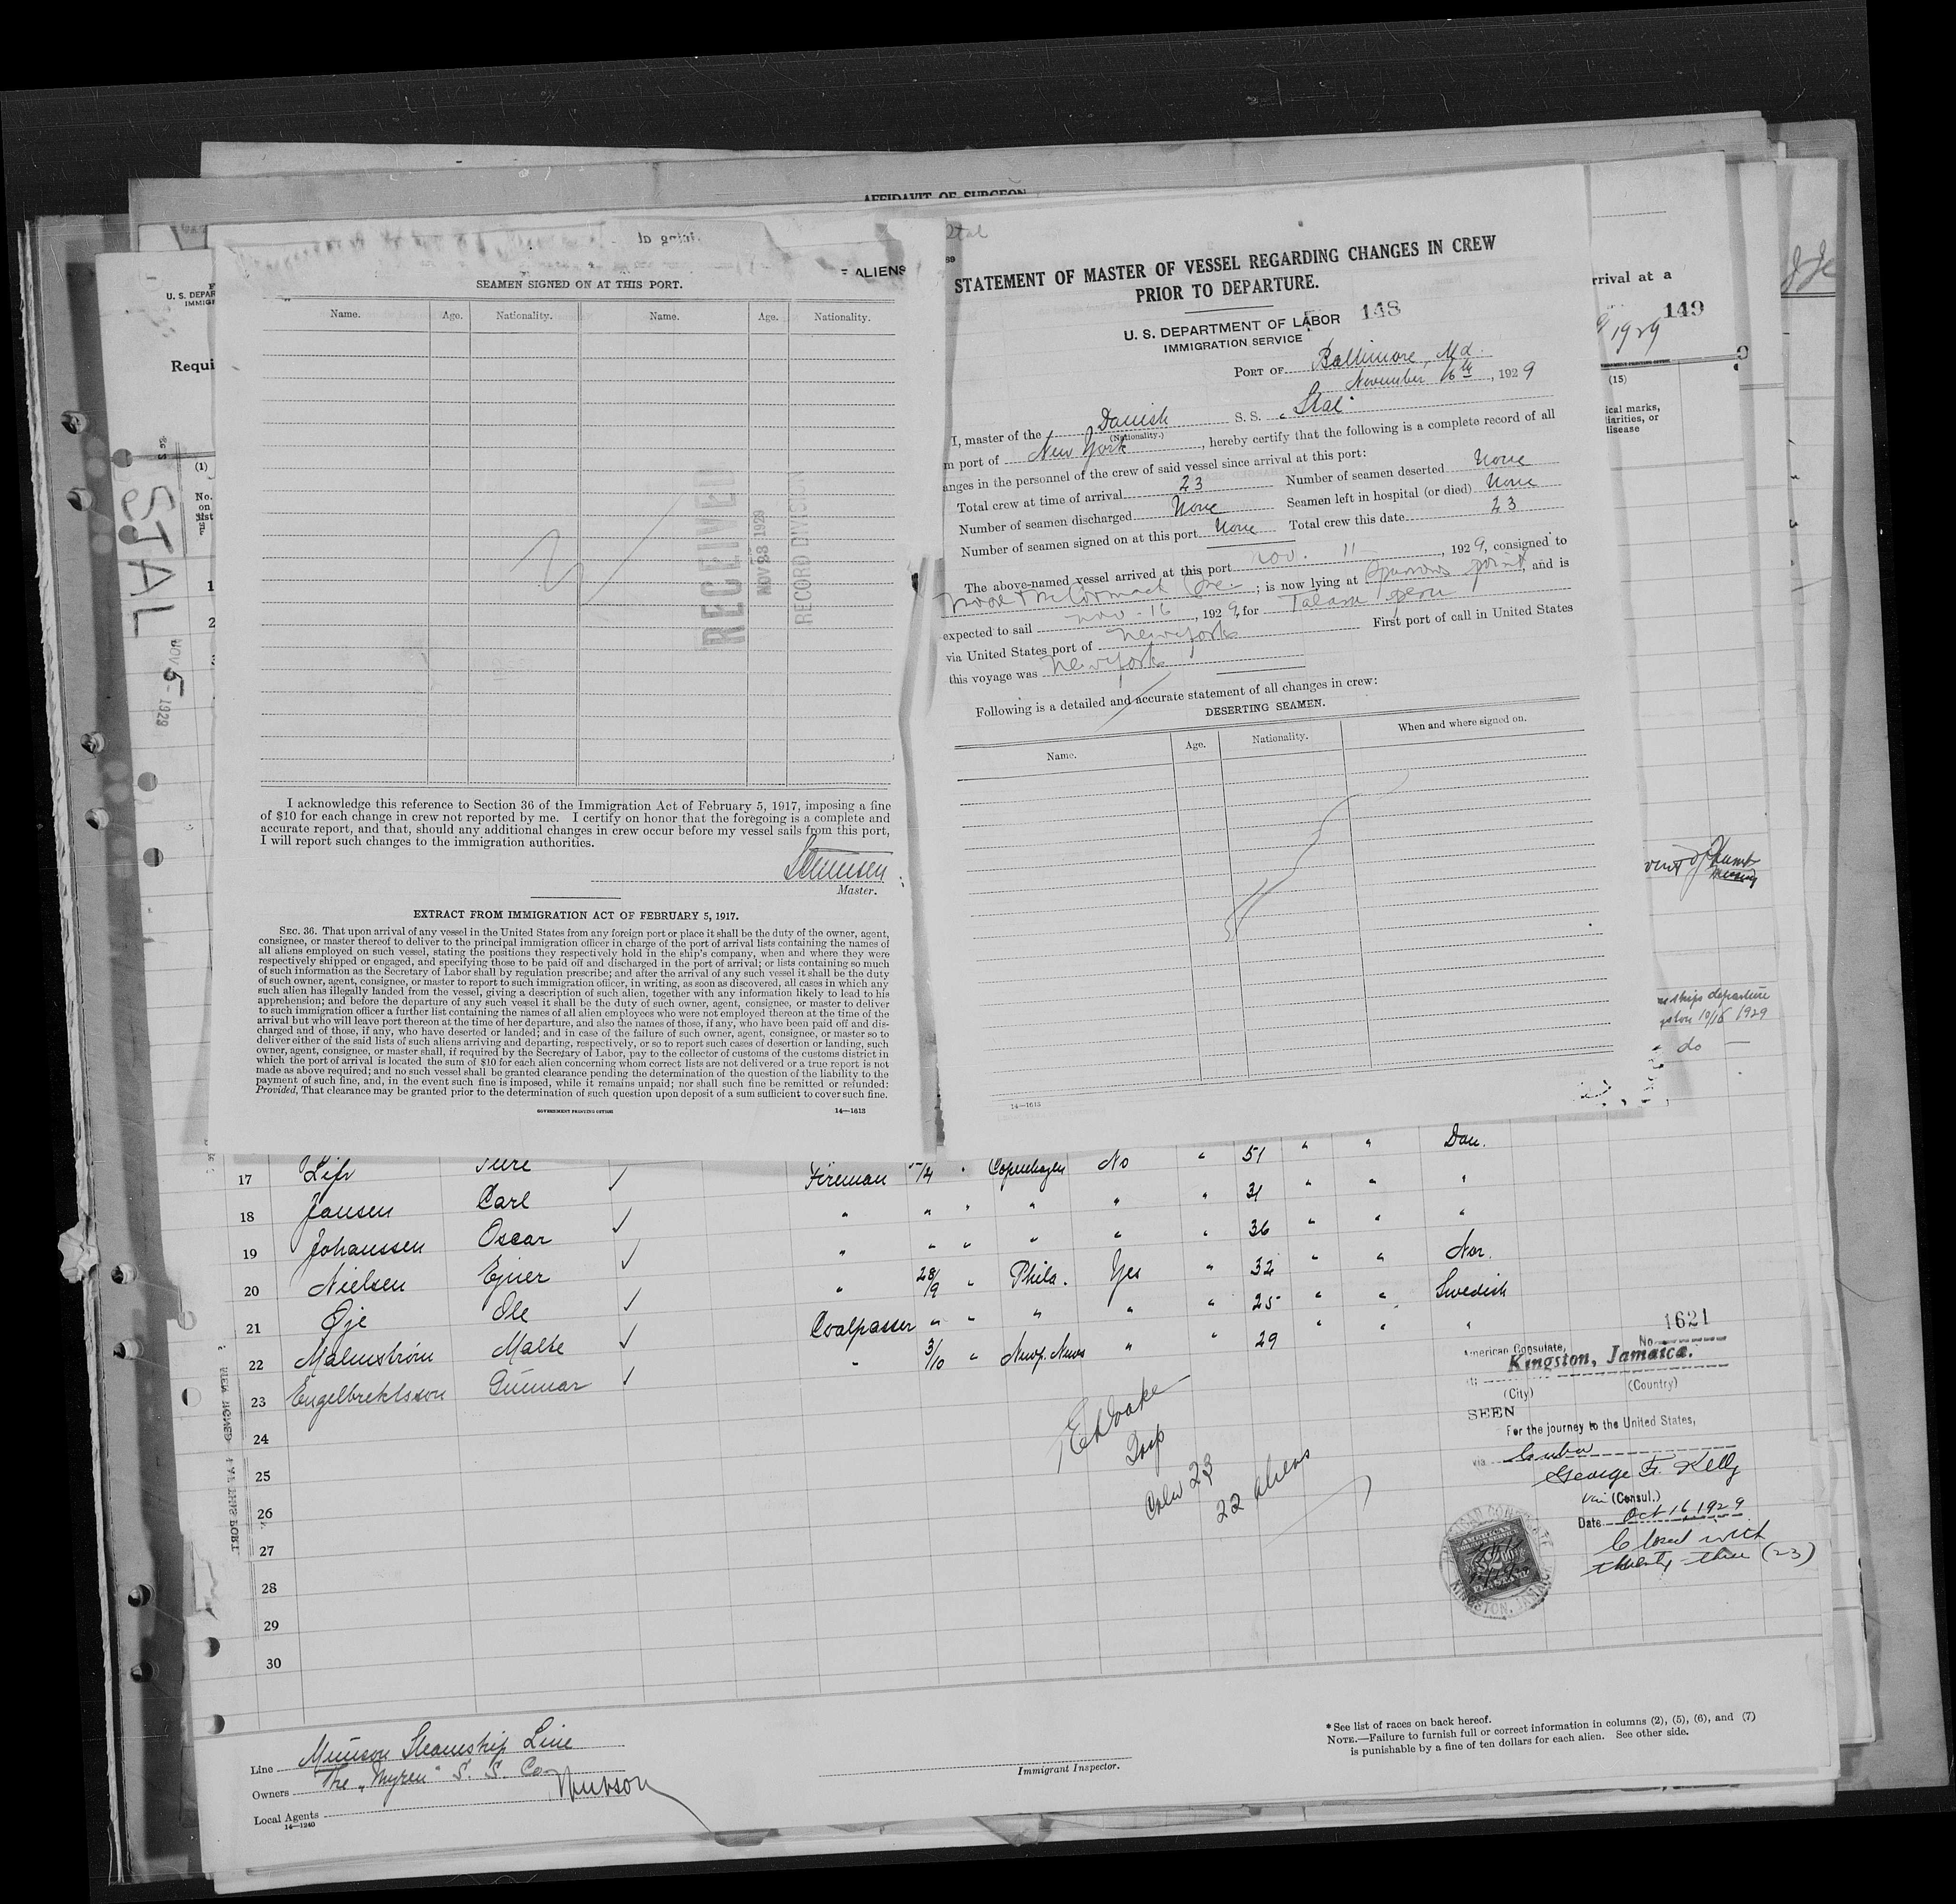 AFFIDAVIT OF SURGEON
= ALIENS
SEAMEN SIGNED ON AT THIS PORT.
Name. Age. Nationality. Name. Age. Nationality.
RECEIVED
NOV 23 1929
RECORD DIVISION
I acknowledge this reference to Section 36 of the Immigration Act of February 5, 1917, imposing a fine
of $10 for each change in crew not reported by me. I certify on honor that the foregoing is a complete and
accurate report, and that, should any additional changes in crew occur before my vessel sails from this port,
I will report such changes to the immigration authorities.
Master.
EXTRACT FROM IMMIGRATION ACT OF FEBRUARY 5, 1917.
SEC. 36. That upon arrival of any vessel in the United States from any foreign port or place it shall be the duty of the owner, agent,
consignee, or master thereof to deliver to the principal immigration officer in charge of the port of arrival lists containing the names of
all aliens employed on such vessel, stating the positions they respectively hold in the ship's company, when and where they were
respectively shipped or engaged, and specifying those to be paid off and discharged in the port of arrival; or lists containing so much
of such information as the Secretary of Labor shall by regulation prescribe; and after the arrival of any such vessel it shall be the duty
of such owner, agent, consignee, or master to report to such immigration officer, in writing, as soon as discovered, all cases in which any
such alien has illegally landed from the vessel, giving a description of such alien, together with any information likely to lead to his
apprehension; and before the departure of any such vessel it shall be the duty of such owner, agent, consignee, or master to deliver
to such immigration officer a further list containing the names of all alien employees who were not employed thereon at the time of the
arrival but who will leave port thereon at the time of her departure, and also the names of those, if any, who have been paid off and dis-
charged and of those, if any, who have deserted or landed; and in case of the failure of such owner, agent, consignee, or master so to
deliver either of the said lists of such aliens arriving and departing, respectively, or so to report such cases of desertion or landing, such
owner, agent, consignee, or master shall, if required by the Secretary of Labor, pay to the collector of customs of the customs district in
which the port of arrival is located the sum of $10 for each alien concerning whom correct lists are not delivered or a true report is not
made as above required; and no such vessel shall be granted clearance pending the determination of the question of the liability to the
payment of such fine, and, in the event such fine is imposed, while it remains unpaid; nor shall such fine be remitted or refunded:
Provided, That clearance may be granted prior to the determination of such question upon deposit of a sum sufficient to cover such fine.
GOVERNMENT PRINTING OFFICE 14—1613
STATEMENT OF MASTER OF VESSEL REGARDING CHANGES IN CREW
PRIOR TO DEPARTURE.
148
U. S. DEPARTMENT OF LABOR
IMMIGRATION SERVICE
PORT OF Baltimore, Md.
November 16th, 1929
I, master of the Danish S. S. "Stal"
(Nationality.)
m port of New York, hereby certify that the following is a complete record of all
anges in the personnel of the crew of said vessel since arrival at this port:
Total crew at time of arrival 23 Number of seamen deserted None
Number of seamen discharged None Seamen left in hospital (or died) None
Number of seamen signed on at this port None Total crew this date 23
The above-named vessel arrived at this port Nov. 11, 1929, consigned to
Moore & McCormack Inc; is now lying at Sparrows point, and is
expected to sail Nov - 16, 1929, for Talara Peru
via United States port of New York First port of call in United States
this voyage was New York
Following is a detailed and accurate statement of all changes in crew:
DESERTING SEAMEN.
Name. Age. Nationality. When and where signed on.
14—1613
U. S. DEPAR
IMMIGR
Requi
(1)
No.
on
list
STAL
NOV 5 - 1929
rrival at a
149
1929
(15)
ical marks,
liarities, or
disease
ships departure
10/16 1929
do —
Dan.
17 Ture ✓ Fireman " Copenhagen No " 51 " " "
18 Jansen Carl ✓ " " " " " " 31 " " "
19 Johanssen Oscar ✓ " " " " " " 36 " " Nor.
20 Nielsen Ejner ✓ " 28/9 " Phila. Yes " 32 " " Swedish
21 Øje Ole ✓ Coalpasser " " " " " 25 " " "
22 Malmström Malte ✓ " 3/10 " Newp. News " " 29
23 Engelbrektsson Gunnar ✓
24
25
26
27
28
29
30
Insp
Crew 23
22 aliens
No. 1621
American Consulate,
Kingston, Jamaica.
(City) (Country)
SEEN
For the journey to the United States,
via Cuba
George F. Kelly
Vice (Consul.)
Date Oct 16 1929
Closed with
twenty three (23)
Line Munson Steamship Line
Owners The "Myren" S. S. Co.
Local Agents Munson
14—1240
Immigrant Inspector.
*See list of races on back hereof.
NOTE.—Failure to furnish full or correct information in columns (2), (5), (6), and (7)
is punishable by a fine of ten dollars for each alien. See other side.